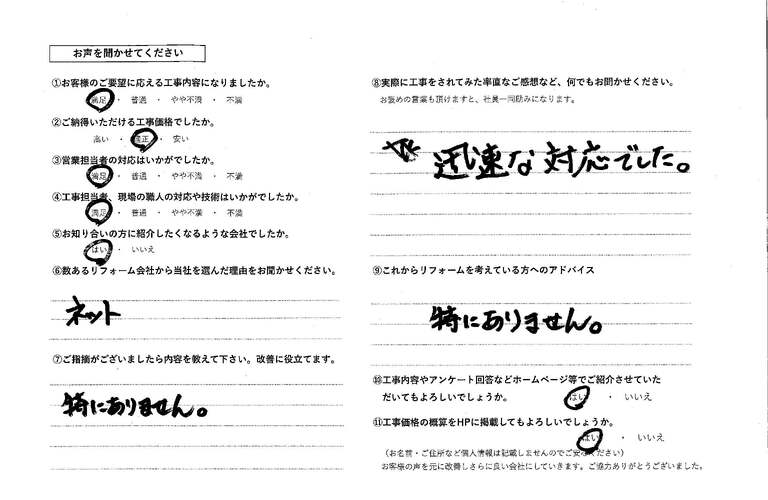 お声を聞かせてください
①お客様のご要望に応える工事内容になりましたか。
満足 ・ 普通 ・ やや不満 ・ 不満
②ご納得いただける工事価格でしたか。
高い ・ 適正 ・ 安い
③営業担当者の対応はいかがでしたか。
満足 ・ 普通 ・ やや不満 ・ 不満
④工事担当者、現場の職人の対応や技術はいかがでしたか。
満足 ・ 普通 ・ やや不満 ・ 不満
⑤お知り合いの方に紹介したくなるような会社でしたか。
はい ・ いいえ
⑥数あるリフォーム会社から当社を選んだ理由をお聞かせください。
ネット
⑦ご指摘がございましたら内容を教えて下さい。改善に役立てます。
特にありません。
⑧実際に工事をされてみた率直なご感想など、何でもお聞かせください。
お褒めの言葉も頂けますと、社員一同励みになります。
迅速な対応でした。
⑨これからリフォームを考えている方へのアドバイス
特にありません。
⑩工事内容やアンケート回答などホームページ等でご紹介させていた
だいてもよろしいでしょうか。 はい ・ いいえ
⑪工事価格の概算をHPに掲載してもよろしいでしょうか。
はい ・ いいえ
(お名前・ご住所など個人情報は記載しませんのでご安心ください)
お客様の声を元に改善しさらに良い会社にしていきます。ご協力ありがとうございました。